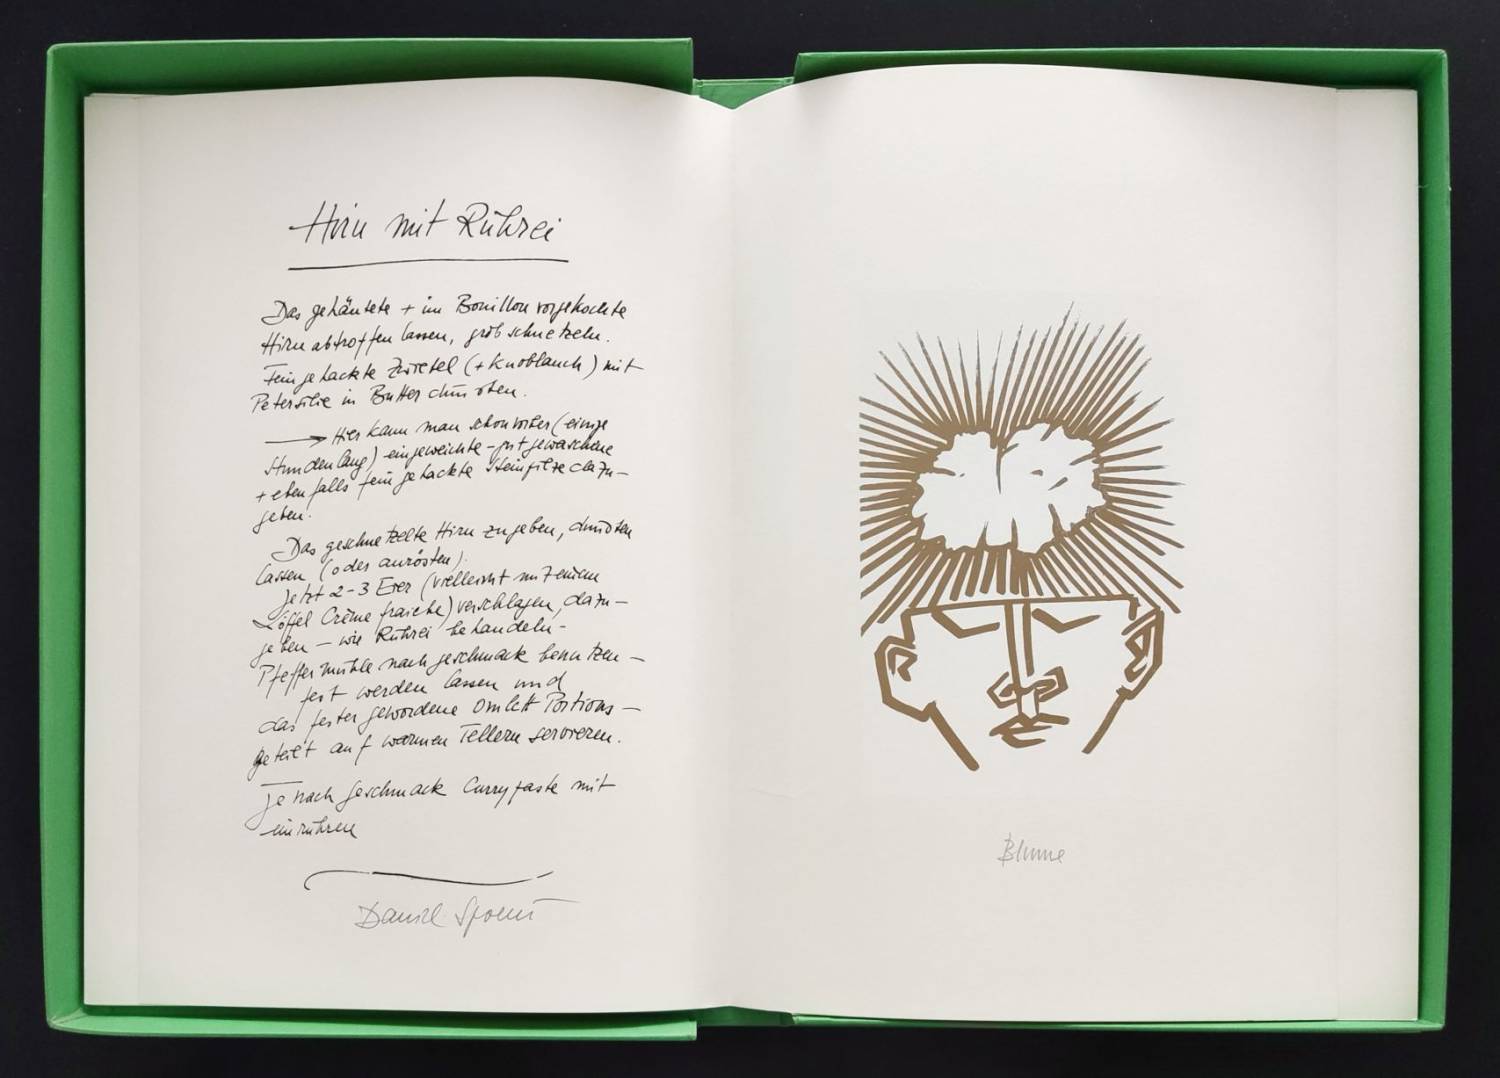 Hirn mit Rührei
Das gehäutete + in Bouillon vorgekochte
Hirn abtropfen lassen, grob schnetzeln.
Feingehackte Zwiebel (+ Knoblauch) mit
Petersilie in Butter dünsten.
Hier kann man schon vorher (einige
Stunden lang) eingeweichte - gut gewaschene
+ ebenfalls fein gehackte Steinpilze dazu-
geben.
Das geschnetzelte Hirn zugeben, dünsten
lassen (oder anrösten).
Jetzt 2-3 Eier (vielleicht mit einem
Löffel Crème fraîche) verschlagen, dazu-
geben - wie Rührei behandeln -
Pfeffermühle nach Geschmack benutzen -
fest werden lassen und
das fester gewordene Omlett Portions-
geteilt auf warmen Tellern servieren.
Je nach Geschmack Currypaste mit
einrühren
Daniel Spoerri
Blume